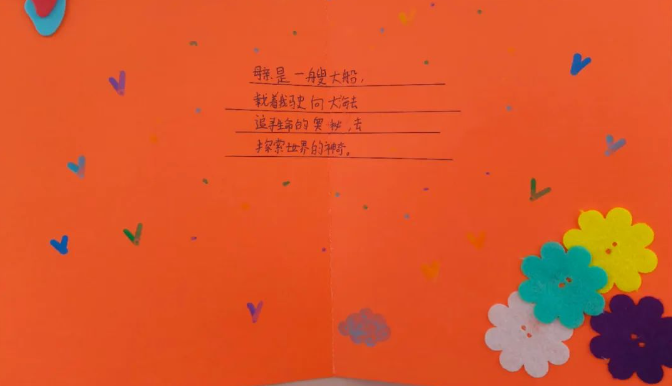 母亲是一艘大船，
载着我驶向大海去
追寻生命的奥秘，去
探索世界的神奇。